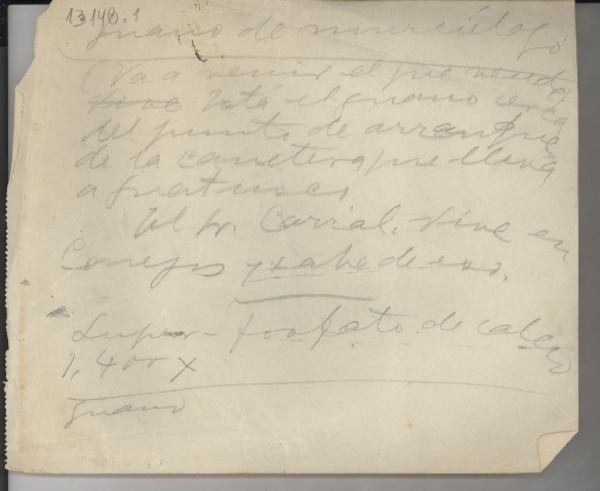 13148.1
Guano de murciélago
(Va a venir el que vende
vive Está el guano cerca
del punto de arranque
de la carretera que lleva
a
El Sr. Corral. Vive en
Conejos y sabe de eso.
Super-fosfato de calcio
1,400 x
Guano